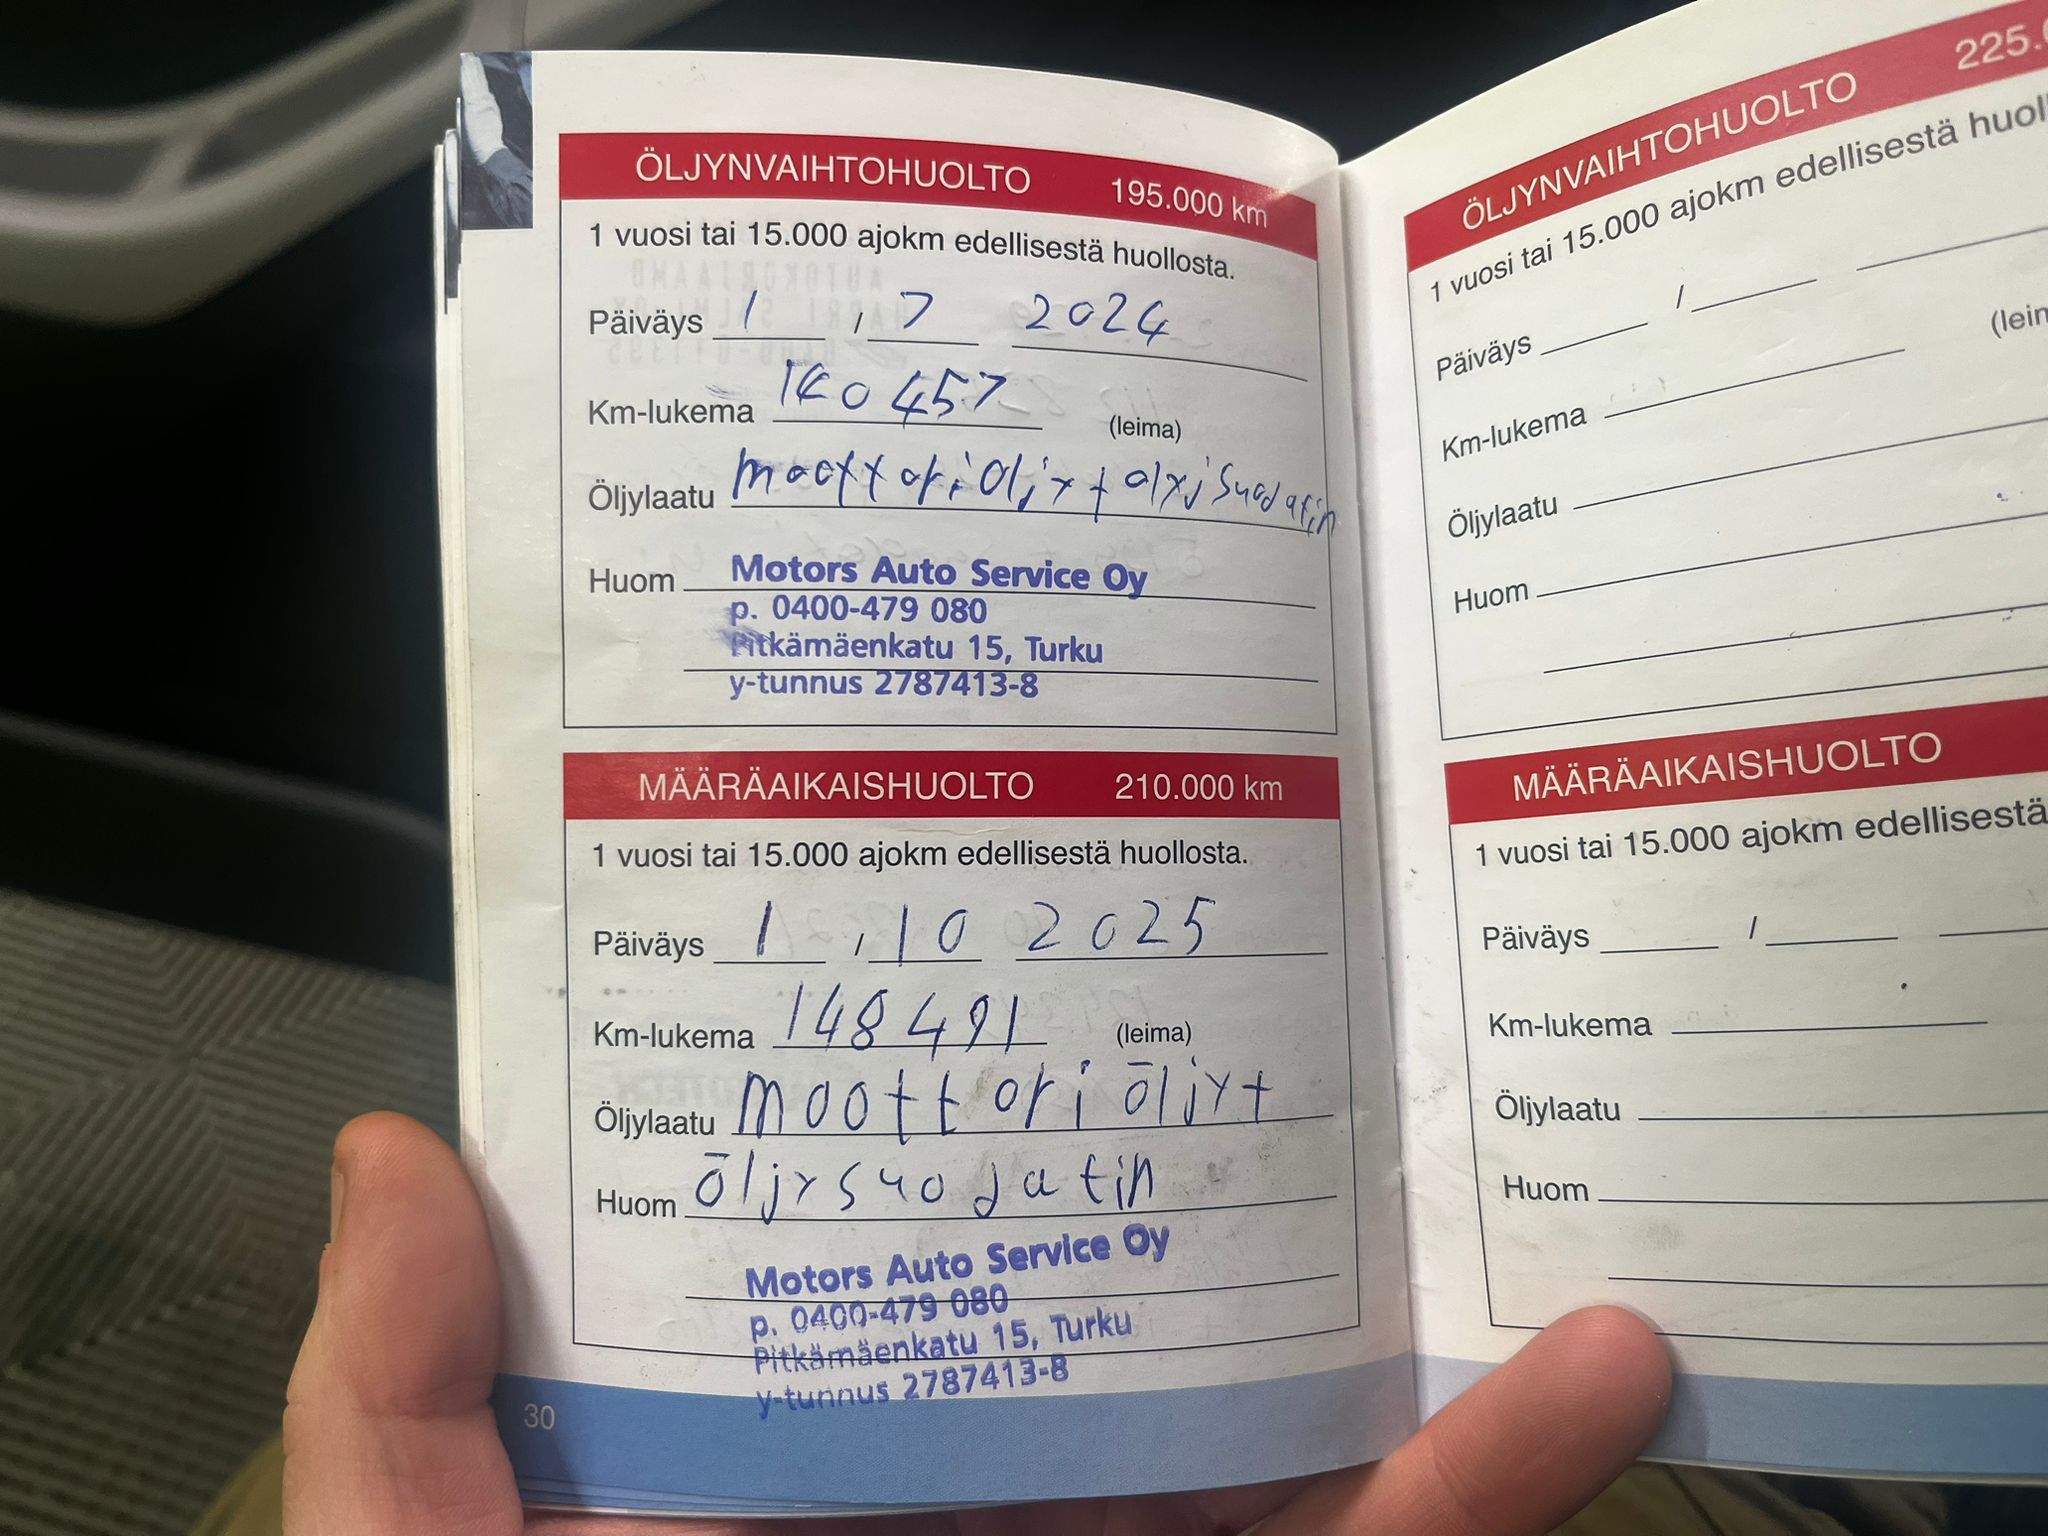 ÖLJYNVAIHTOHUOLTO 195.000 km
1 vuosi tai 15.000 ajokm edellisestä huollosta.
Päiväys 1 / 7 2024
Km-lukema 140457 (leima)
Öljylaatu moottoriöljyt öljysuodatin
Huom Motors Auto Service Oy
p. 0400-479 080
Pitkämäenkatu 15, Turku
y-tunnus 2787413-8
MÄÄRÄAIKAISHUOLTO 210.000 km
1 vuosi tai 15.000 ajokm edellisestä huollosta.
Päiväys 1 / 10 2025
Km-lukema 148491 (leima)
Öljylaatu moottori öljyt
Huom öljysuodatin
Motors Auto Service Oy
p. 0400-479 080
Pitkämäenkatu 15, Turku
y-tunnus 2787413-8
30
ÖLJYNVAIHTOHUOLTO 225.
1 vuosi tai 15.000 ajokm edellisestä
Päiväys /
Km-lukema
Öljylaatu
Huom
MÄÄRÄAIKAISHUOLTO
1 vuosi tai 15.000 ajokm edellisestä
Päiväys /
Km-lukema
Öljylaatu
Huom